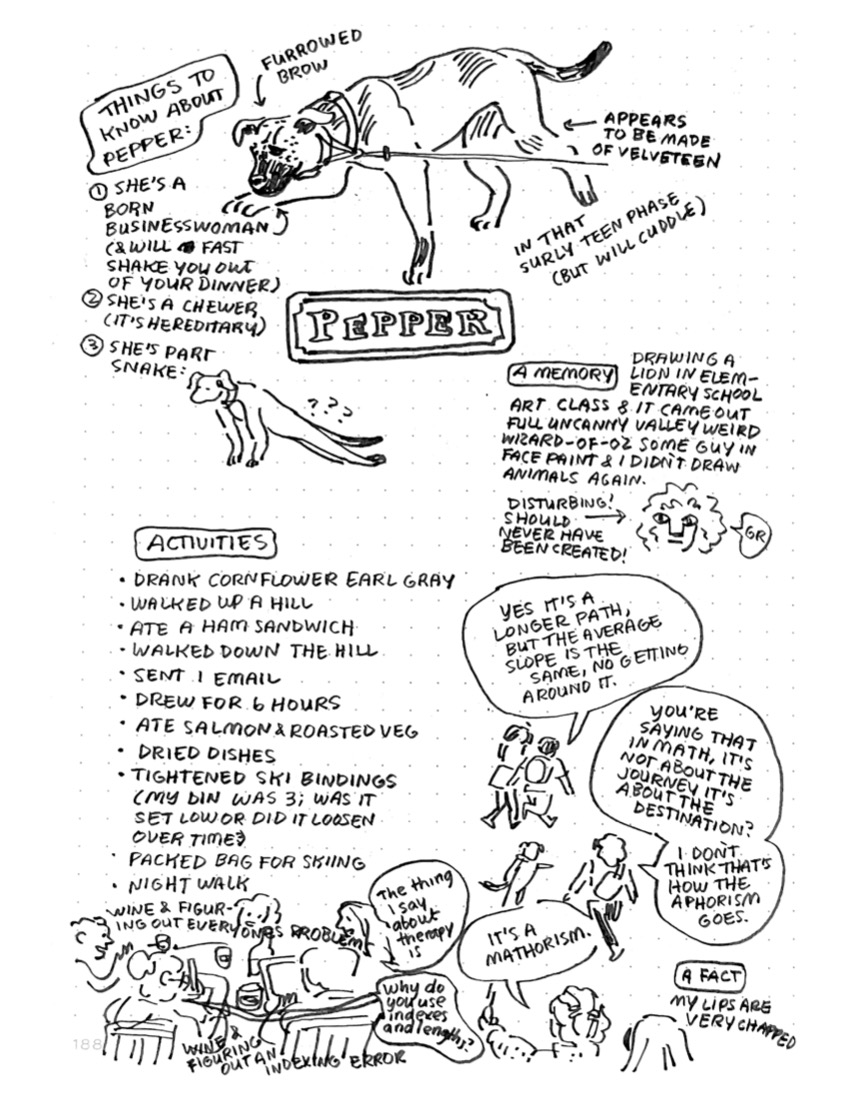 THINGS TO
KNOW ABOUT
PEPPER:
FURROWED
BROW
APPEARS
TO BE MADE
OF VELVETEEN
IN THAT
SURLY TEEN PHASE
(BUT WILL CUDDLE)
① SHE'S A
BORN
BUSINESSWOMAN
(& WILL FAST
SHAKE YOU OUT
OF YOUR DINNER)
② SHE'S A CHEWER
(IT'S HEREDITARY)
③ SHE'S PART
SNAKE:
???
PEPPER
A MEMORY
DRAWING A
LION IN ELEM-
ENTARY SCHOOL
ART CLASS & IT CAME OUT
FULL UNCANNY VALLEY WEIRD
WIZARD-OF-OZ SOME GUY IN
FACE PAINT & I DIDN'T DRAW
ANIMALS AGAIN.
DISTURBING!
SHOULD
NEVER HAVE
BEEN CREATED!
GR
ACTIVITIES
• DRANK CORNFLOWER EARL GRAY
• WALKED UP A HILL
• ATE A HAM SANDWICH
• WALKED DOWN THE HILL
• SENT 1 EMAIL
• DREW FOR 6 HOURS
• ATE SALMON & ROASTED VEG
• DRIED DISHES
• TIGHTENED SKI BINDINGS
(MY DIN WAS 3; WAS IT
SET LOW OR DID IT LOOSEN
OVER TIME?)
• PACKED BAG FOR SKIING
• NIGHT WALK
YES IT'S A
LONGER PATH,
BUT THE AVERAGE
SLOPE IS THE
SAME, NO GETTING
AROUND IT.
YOU'RE
SAYING THAT
IN MATH, IT'S
NOT ABOUT THE
JOURNEY IT'S
ABOUT THE
DESTINATION?
I DON'T
THINK THAT'S
HOW THE
APHORISM
GOES.
IT'S A
MATHORISM.
WINE & FIGUR-
ING OUT EVERYONE'S PROBLEM
The thing
I say
about
therapy
is
Why do
you use
indexes
and lengths?
WINE &
FIGURING
OUT AN
INDEXING ERROR
A FACT
MY LIPS ARE
VERY CHAPPED
188